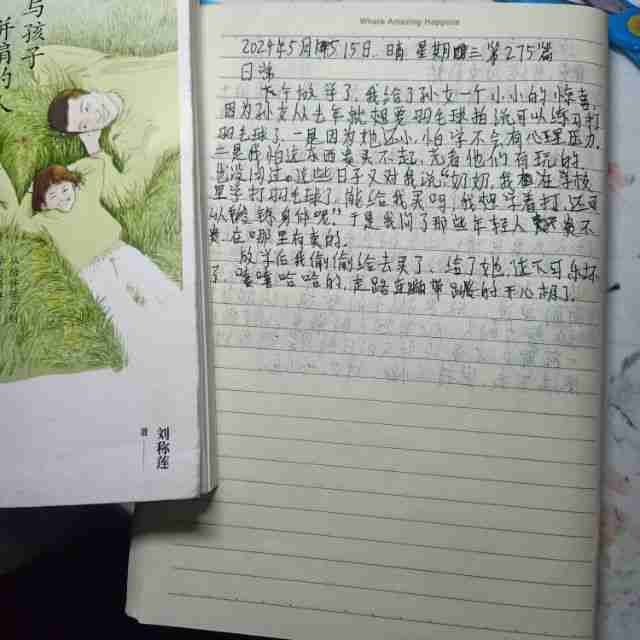 与孩子
并肩的人
刘称莲
著
Whats Amazing Happens
2024年5月15日 晴 星期三 第275篇
日诗
下午放学了,我给了孙女一个小小的惊喜
因为孙女从去年就想要羽毛球拍说可以练习打
羽毛球了,一是因为她还小,怕学不会有心理压力,
二是我怕这东西丢买不起,见着他们有玩的
也没问过。这些日子又对我说"奶奶,我想在学校
里学打羽毛球了,能给我买吗,我想学着打,还可
以锻炼身体呢"于是我问了那些年轻人
在哪里有卖的.
放学后我偷偷给去买了,给了她,这不可乐坏
了,嘻嘻哈哈的,走路连蹦带跳的开心极了.